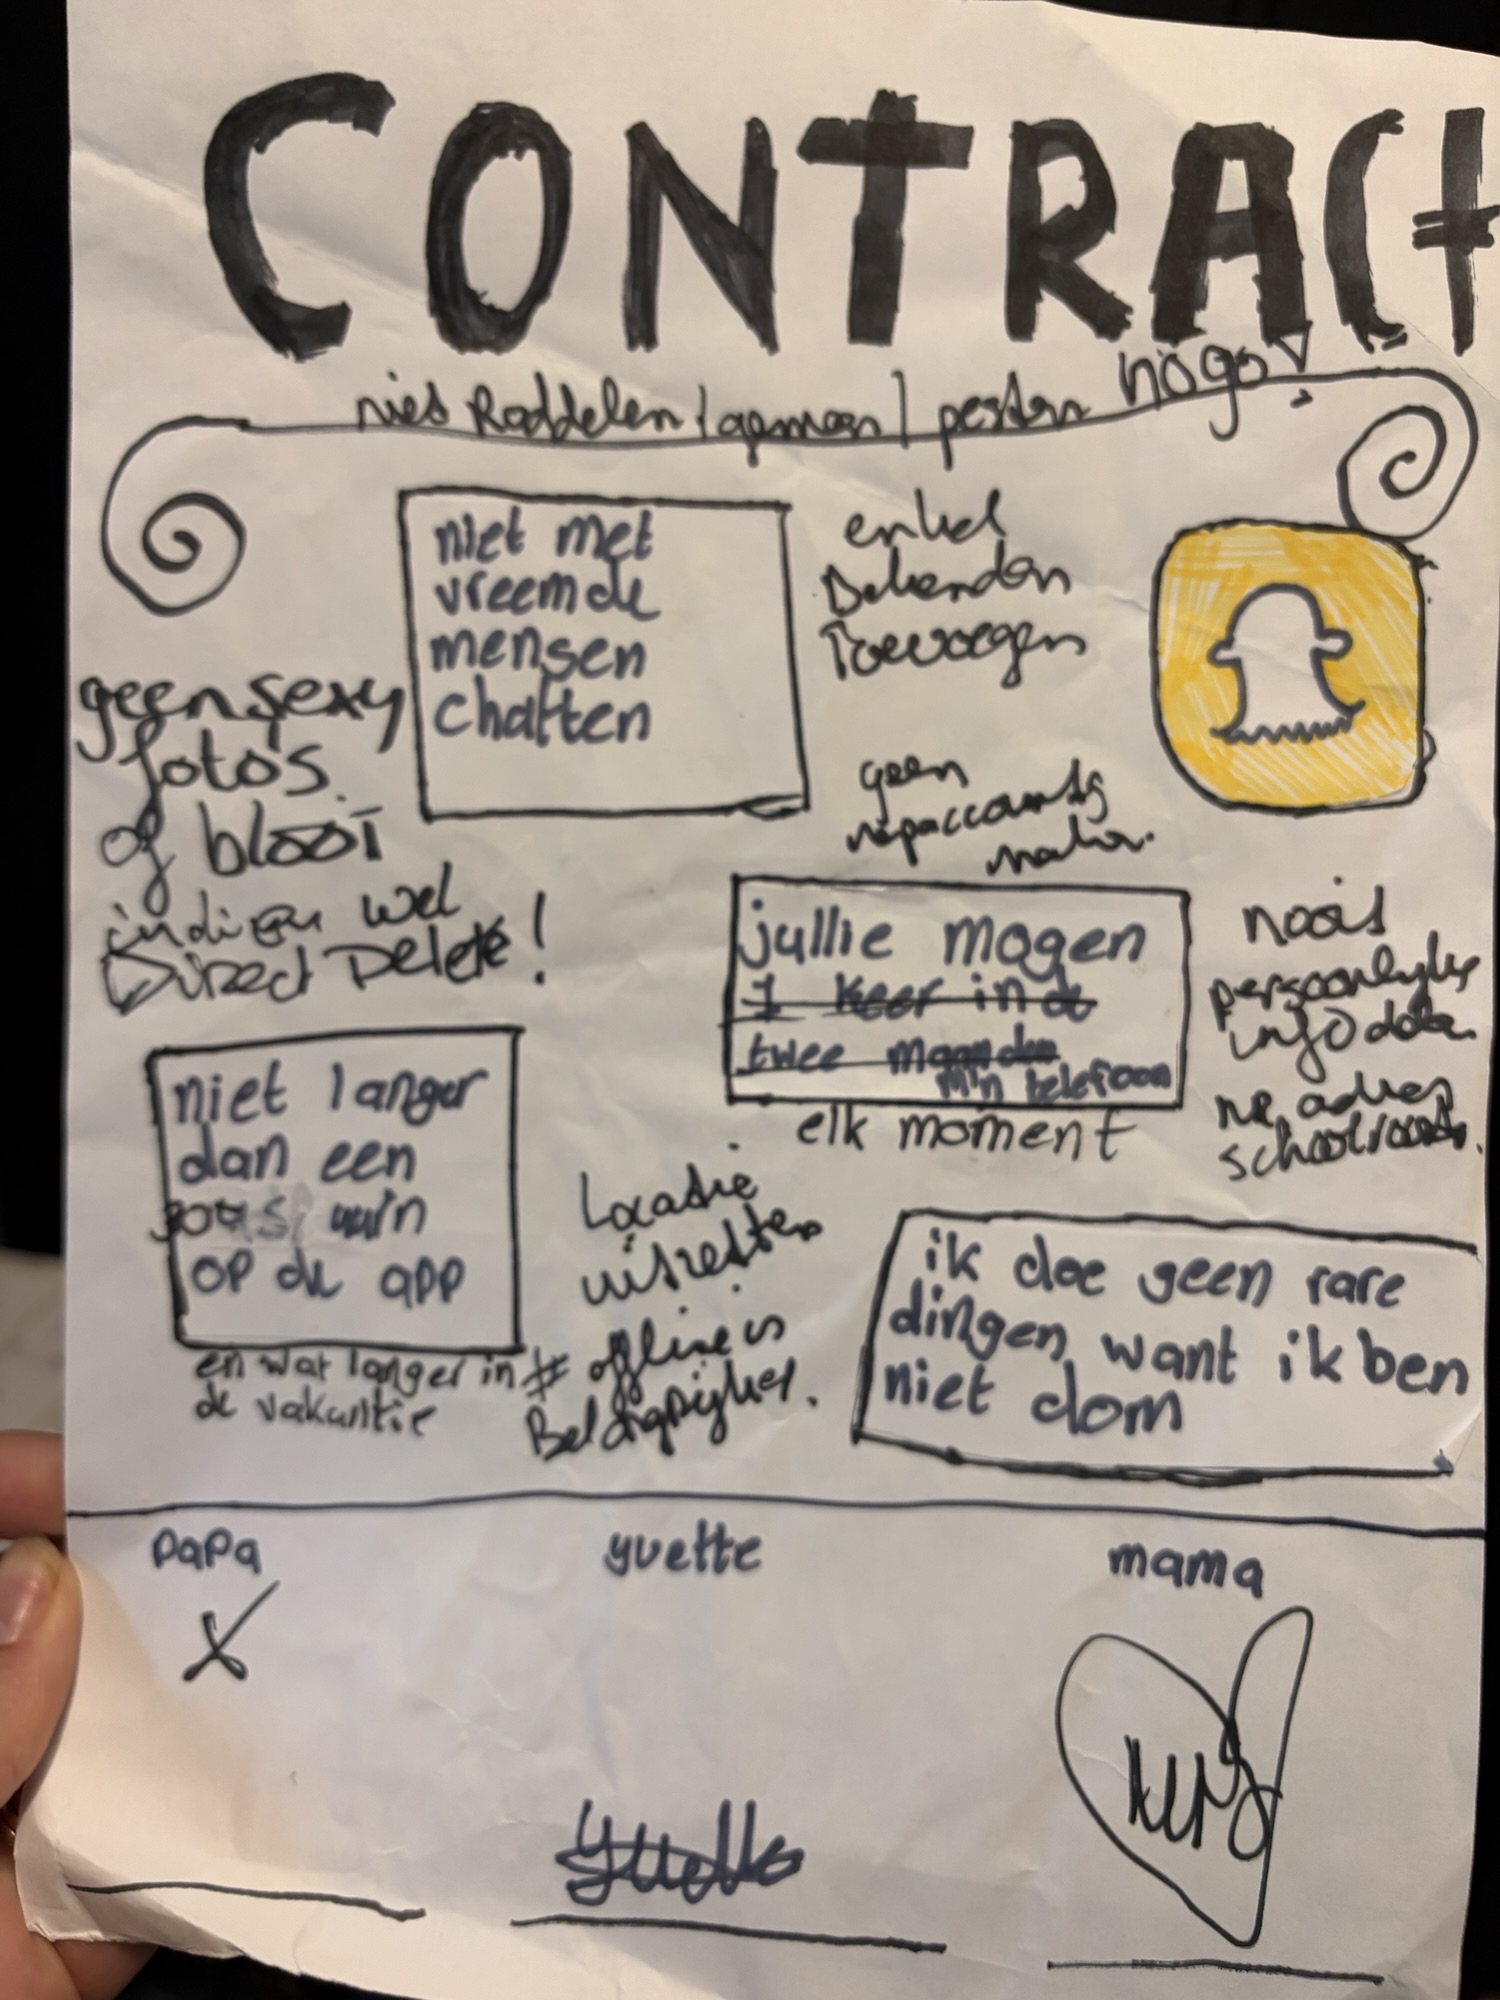 CONTRACT
niet Roddelen / gemeen / pesten nogo!
niet met
vreemde
mensen
chatten
enkel
Bekenden
Toevoegen
geen sexy
foto's
of bloot
indien wel
Direct Delete!
geen
nepaccounts
maken.
jullie mogen
1 keer in de
twee maanden
m'n telefoon
elk moment
nooit
persoonlijke
info delen
adres
niet langer
dan een
uur'n
op de app
en wat langer in
de vakantie
Locatie
uitzetten
# offline is
Belangrijker.
ik doe geen rare
dingen want ik ben
niet dom
papa
yvette
mama
X
Yvette